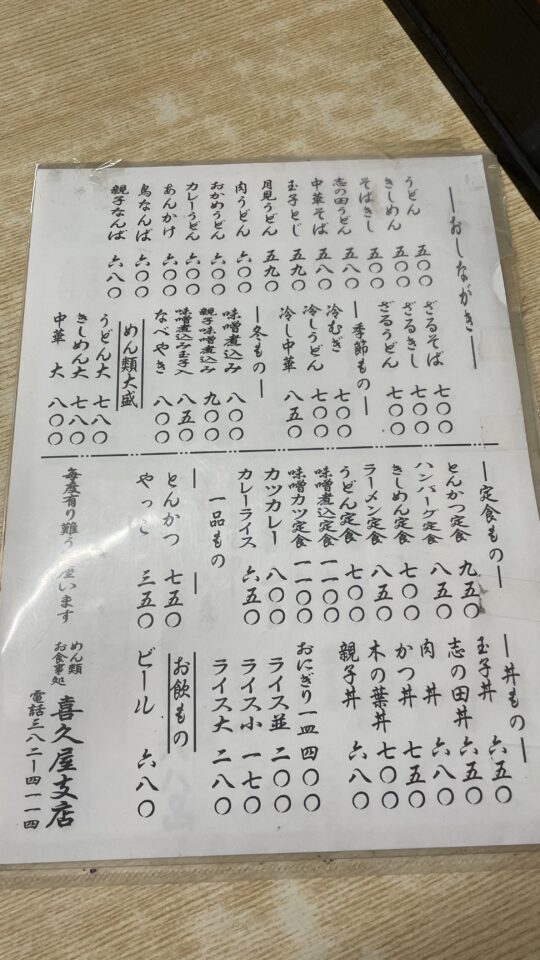 おしながき
うどん 五〇〇
きしめん 五〇〇
そばきし 五〇〇
志の田うどん 五八〇
中華そば 五八〇
玉子とじ 五九〇
月見うどん 五九〇
肉うどん 六〇〇
おかめうどん 六〇〇
カレーうどん 六〇〇
あんかけ 六〇〇
鳥なんば 六〇〇
親子なんば 六八〇
ざるそば 七〇〇
ざるきし 七〇〇
ざるうどん 七〇〇
季節もの
冷むぎ 七〇〇
冷しうどん 七〇〇
冷し中華 八五〇
冬もの
味噌煮込み 八〇〇
親子味噌煮込み 九〇〇
味噌煮込み玉子入 八五〇
なべやき 八〇〇
めん類大盛
うどん大 七八〇
きしめん大 七八〇
中華 大 八〇〇
定食もの
とんかつ定食 九五〇
ハンバーグ定食 八五〇
きしめん定食 七〇〇
ラーメン定食 八五〇
うどん定食 七〇〇
味噌煮込定食 一一〇〇
味噌カツ定食 一一〇〇
カツカレー 八〇〇
カレーライス 六五〇
一品もの
とんかつ 七五〇
やっこ 三五〇
丼もの
玉子丼 六五〇
志の田丼 六五〇
肉 丼 六八〇
かつ丼 七五〇
木の葉丼 七〇〇
親子丼 六八〇
おにぎり一皿 四〇〇
ライス並 二〇〇
ライス小 一七〇
ライス大 二八〇
お飲もの
ビール 六八〇
毎度有り難う 座います
めん類
お食事処
喜久屋支店
電話三八二ー四一一四